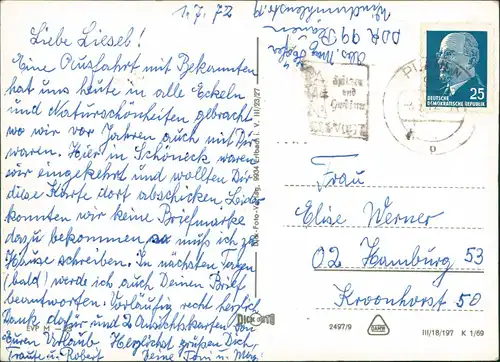 1.7.72
Liebe Liesel!
Eine Ausfahrt mit Bekannten
hat uns heute in alle Ecken
und Naturschönheiten gebracht
wo wir vor Jahren auch mit Dir
waren. Hier in Schöneck waren
wir eingekehrt und wollten Dir
diese Karte dort abschicken. Leider
konnten wir keine Briefmarke
dazu bekommen so muß ich zu
Hause schreiben. In nächsten Tagen
(bald) werde ich auch Deinen Brief
beantworten. Vorläufig recht herzlich
Dank dafür und 2 Ansichtskarten von
Euren Urlaub. Herzlichst grüßen Dich,
Traute u. Robert Deine Toni u.
EVP M
DDR 99 Plauen
Erlbach i. V. III/23/27
DICK FOTO
PLAUEN
DEUTSCHE
DEMOKRATISCHE REPUBLIK
25
Frau
Elise Werner
02 Hamburg 53
Kroonhorst 50
2497/9
III/18/197 K 1/69